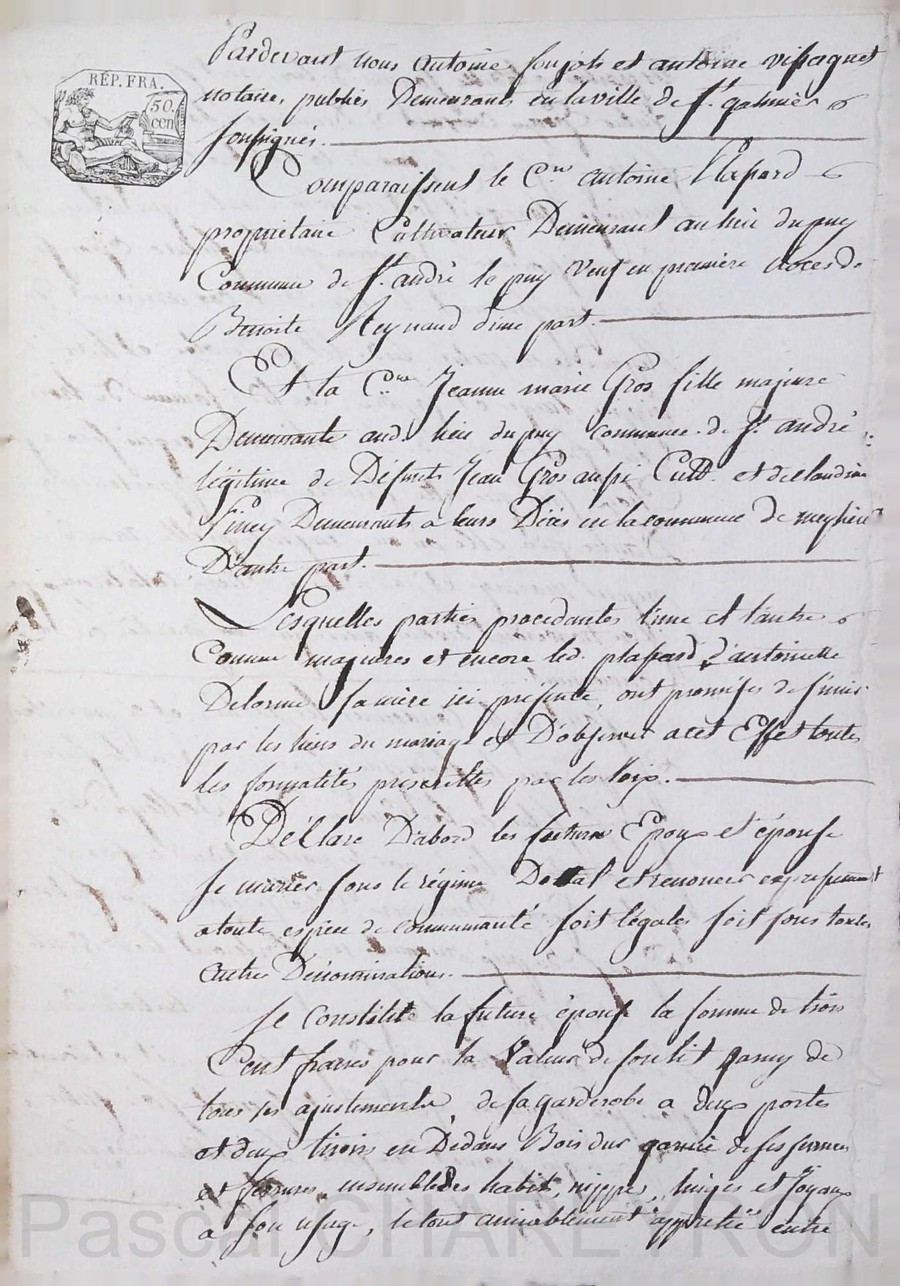 RÉP. FRA.
50.
cen
Pardevant nous antoine Soujols et antoine vissaguet
notaires publics Demeurants en la ville de St. galmier
soussignés.
Comparaissent le Cen. antoine Plassard
propriétaire Cultivateur Demeurant au lieu du puy
Commune de St. andré le puy veuf en premiere noces de
Benoite Reynaud d'une part.
Et la Cne. Jeanne marie Gros fille majeure
Demeurante aud. lieu du puy commune de St. andré
légitime de Défunts Jean Gros aussi Cultr. et de Claudine
Piney Demeurants a leurs Décès en la commune de
D'autre part.
Lesquelles parties procedantes l'une et l'autre
Comme majeures et encore led. plassard d'antoinette
Delorme sa mère ici présente, ont promises de s'unir
par les liens du mariage et D'observer a cet Effet toutes
les formalités prescrittes par les loix.
Déclare D'abord les futurs Epoux et épouse
se marier sous le régime Dotal et renoncer expressement
a toute espece de communauté soit légales soit sous toutes
autres Dénominations.
Se Constitue la future épouse la somme de trois
Cent francs pour la Valeur de son lit garny de
tous ses ajustements, de sa garderobe a deux portes
et deux tiroirs en Dedans Bois dur garnie de ses serrures
et ferrures ensembles des habits, nippes, linges et Joyaux
a son usage, le tout amiablement apprétié entre
Pascal CHARETTRON